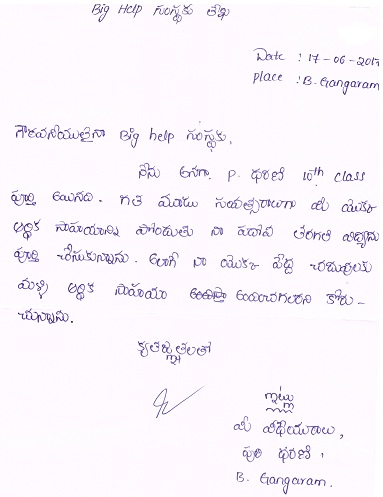 Big Help సంస్థకు లేఖ
Date : 17-06-2017
place : B. Gangaram
గౌరవనీయులైనా Big help సంస్థకు,
నేను అనగా P. ధరణి 10th class
పూర్తి అయినది. గత మూడు సంవత్సరాలుగా మీ యొక్క
ఆర్థిక సాహయాన్ని పొందుతు నా పదోవ తరగతి విద్యను
పూర్తి చేసుకున్నాను. అలాగే నా యొక్క పెద్ద చదువులకు
మళ్ళి ఆర్థిక సాహయం అందిచగలరని కోరు-
చున్నాను.
కృతజ్ఞతలతో
ఇట్లు
మీ విధేయురాలు,
ధరణి
B. Gangaram.